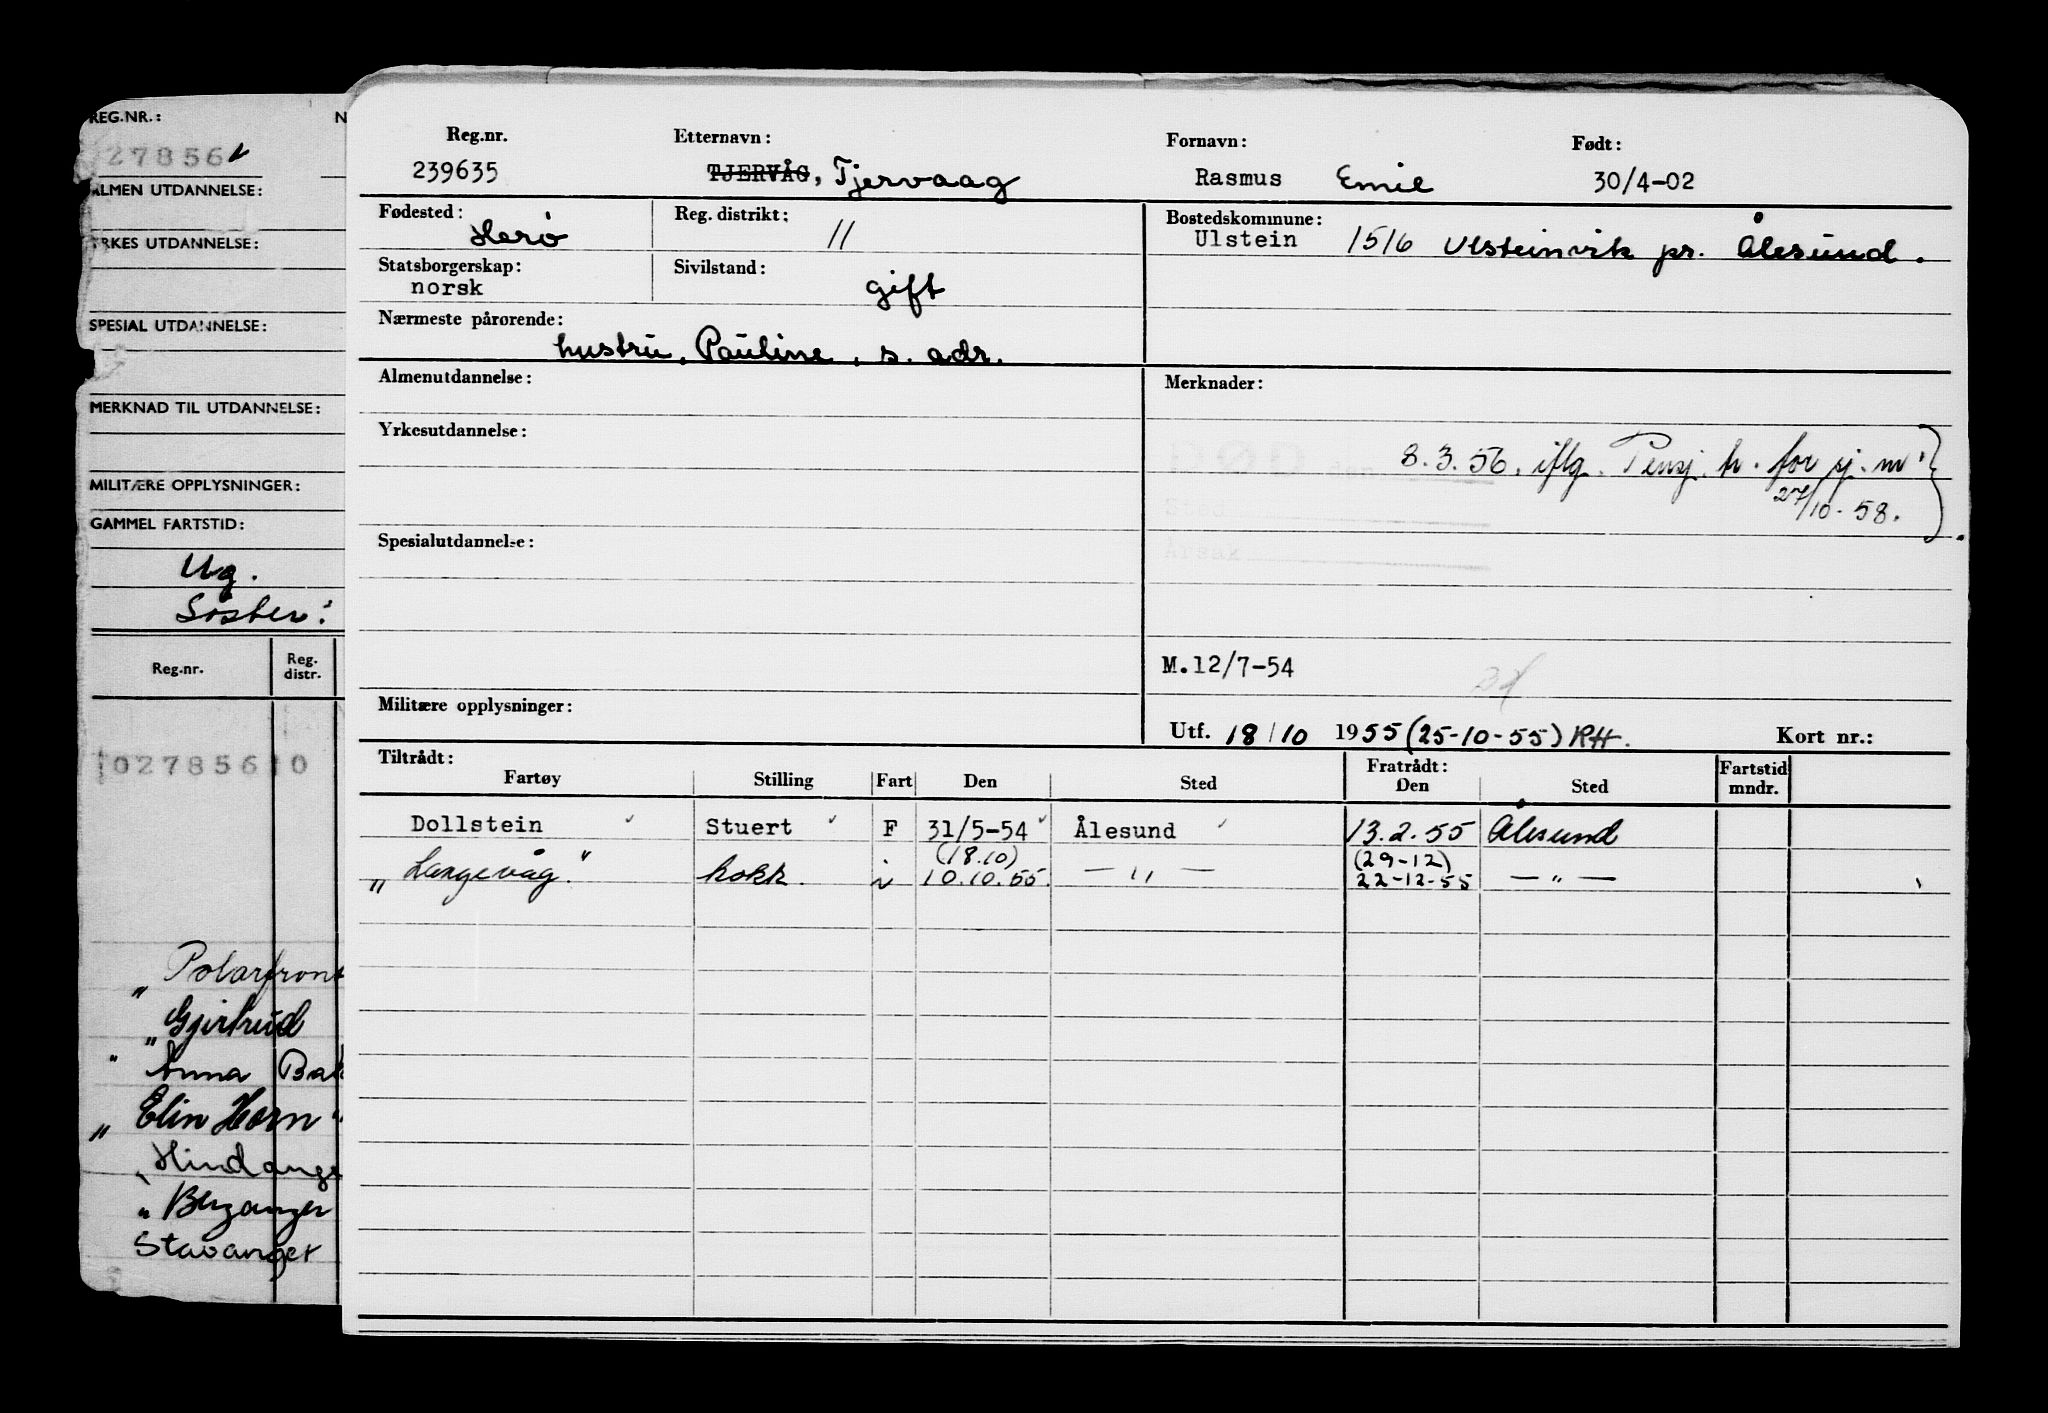 REG.NR.:
27856
ALMEN UTDANNELSE:
YRKES UTDANNELSE:
SPESIAL UTDANNELSE:
MERKNAD TIL UTDANNELSE:
MILITÆRE OPPLYSNINGER:
GAMMEL FARTSTID:
Ug.
Søster:
Reg.nr. Reg. distr.
0278560
„Polarfront
„Gjertrud
" Anna Bak
„ Elin Horn "
„Hindanger
„Berganger
Stavanger
Reg.nr. Etternavn: Fornavn: Født:
239635 TJERVÅG, Tjervaag Rasmus Emil 30/4-02
Fødested: Herø Reg. distrikt: 11 Bostedskommune:
Ulstein 1516 Ulsteinvik pr. Ålesund.
Statsborgerskap: norsk Sivilstand: gift
Nærmeste pårørende: hustru, Pauline, s. adr.
Almenutdannelse: Merknader:
Yrkesutdannelse:
DØD den 8.3.56. iflg. Pensj. tr. for sj.m.
Sted 27/10-58.
Årsak
Spesialutdannelse:
M.12/7-54
Militære opplysninger:
Utf. 18/10 1955 (25-10-55) RH. Kort nr.:
Tiltrådt: Fratrådt: Fartstid mndr.
Fartøy Stilling Fart Den Sted Den Sted
Dollstein Stuert F 31/5-54 Ålesund 13.2.55 Ålesund
(18.10) (29-12)
„Langevåg." kokk. i 10.10.55. — " — 22-12-55 — " —